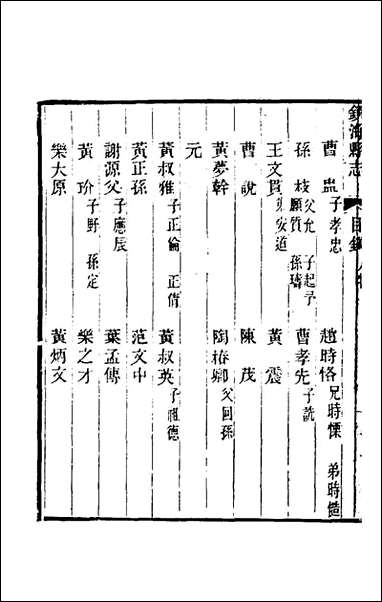 鎮海縣志 目錄 人物
曹盅 子孝忠 趙時恪 兄時慄 弟時慥
孫枝 父允 子起予 願質 孫璹 曹孝先 子説
王文貫 弟安道 黃震
曹說 陳茂
黃夢幹 陶椿卿 父回孫
元
黃叔雅 子正倫 正脩 黃叔英 子祖德
黃正孫 范文中
謝源父 子應辰 葉孟傳
黃玠 子野 孫定 樂之才
樂大原 黃炳文